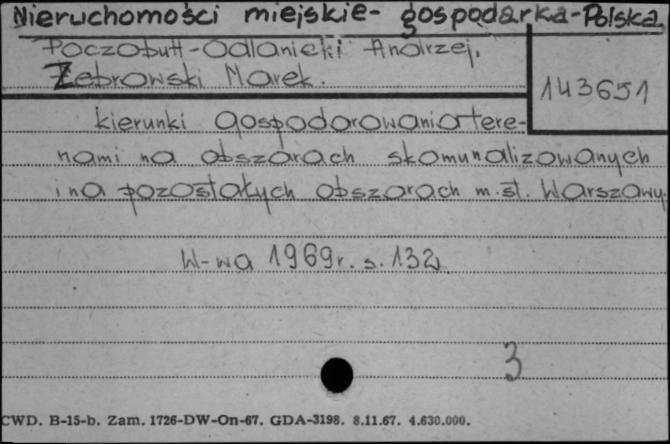 Nieruchomości miejskie - gospodarka - Polska
Poczobutt-Odlanicki Andrzej.
Żebrowski Marek.
143651
kierunki gospodarowania tere-
nami na obszarach skomunalizowanych
i na pozostałych obszarach m. st. Warszawy.
W-wa 1969r. s. 132
3
CWD. B-15-b. Zam. 1726-DW-On-67. GDA-3198. 8.11.67. 4.630.000.